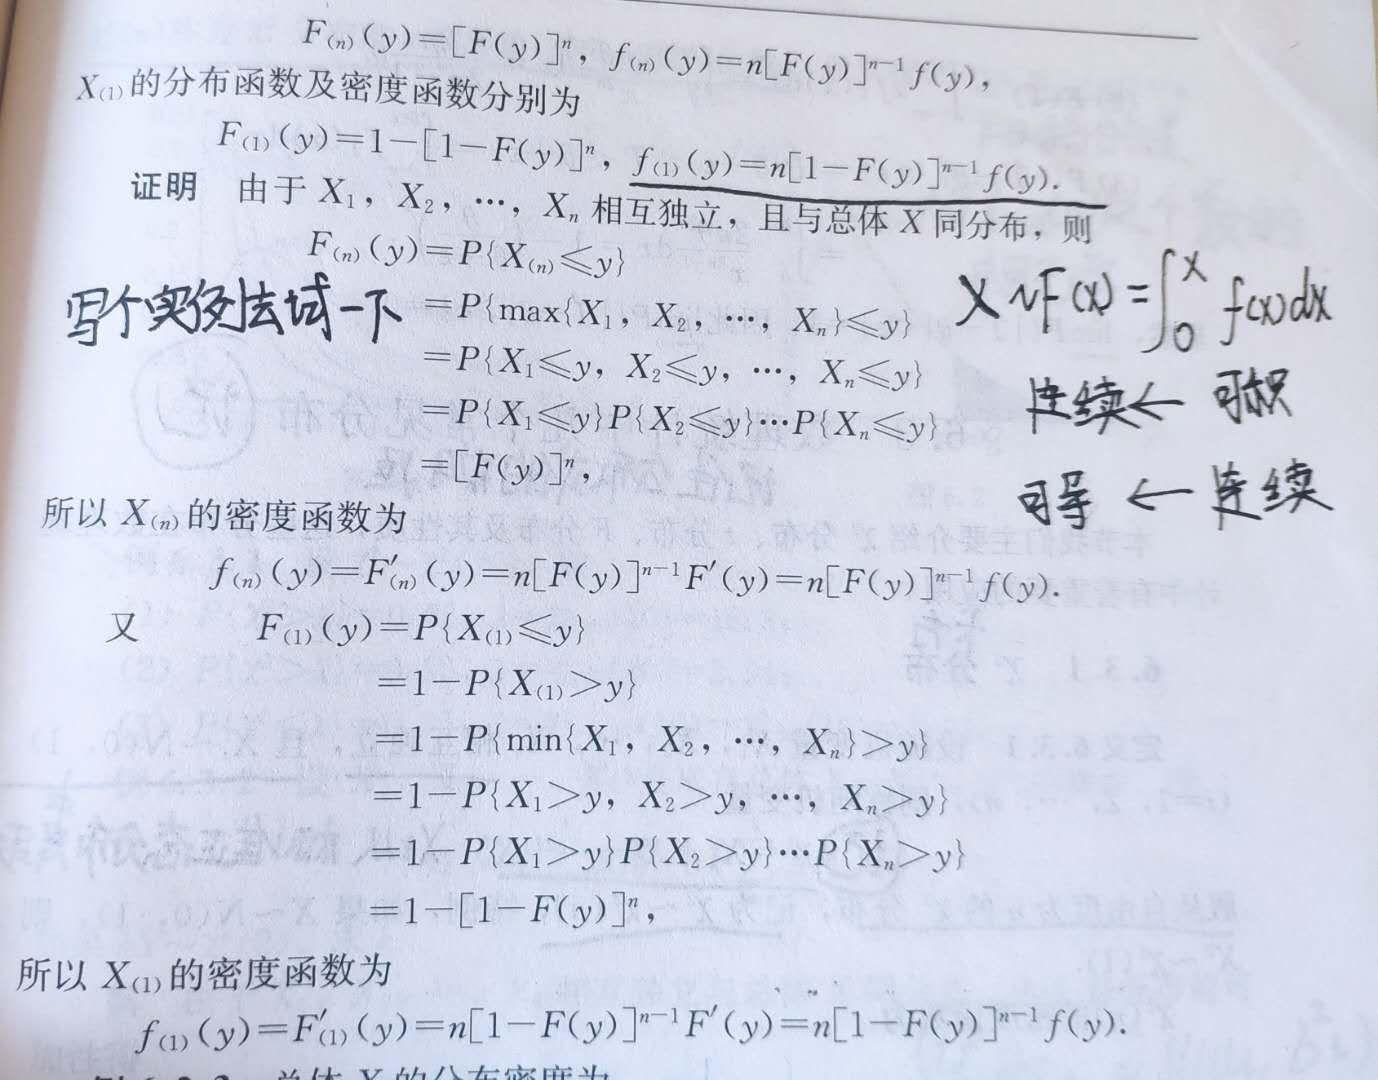 F₍ₙ₎(y)=[F(y)]ⁿ, f₍ₙ₎(y)=n[F(y)]ⁿ⁻¹f(y),
X₍₁₎的分布函数及密度函数分别为
F₍₁₎(y)=1-[1-F(y)]ⁿ, f₍₁₎(y)=n[1-F(y)]ⁿ⁻¹f(y).
证明 由于 X₁, X₂, ⋯, Xₙ 相互独立, 且与总体 X 同分布, 则
F₍ₙ₎(y)=P{X₍ₙ₎≤y}
写个实例法域一下
=P{max{X₁, X₂, ⋯, Xₙ}≤y}
X~F(x)=∫₀ˣ f(x)dx
=P{X₁≤y, X₂≤y, ⋯, Xₙ≤y}
连续← 可积
=P{X₁≤y}P{X₂≤y}⋯P{Xₙ≤y}
=[F(y)]ⁿ,
可导 ← 连续
所以 X₍ₙ₎的密度函数为
f₍ₙ₎(y)=F′₍ₙ₎(y)=n[F(y)]ⁿ⁻¹F′(y)=n[F(y)]ⁿ⁻¹f(y).
又 F₍₁₎(y)=P{X₍₁₎≤y}
=1-P{X₍₁₎>y}
=1-P{min{X₁, X₂, ⋯, Xₙ}>y}
=1-P{X₁>y, X₂>y, ⋯, Xₙ>y}
=1-P{X₁>y}P{X₂>y}⋯P{Xₙ>y}
=1-[1-F(y)]ⁿ,
所以 X₍₁₎的密度函数为
f₍₁₎(y)=F′₍₁₎(y)=n[1-F(y)]ⁿ⁻¹F′(y)=n[1-F(y)]ⁿ⁻¹f(y).
总体 X 的分布密度为